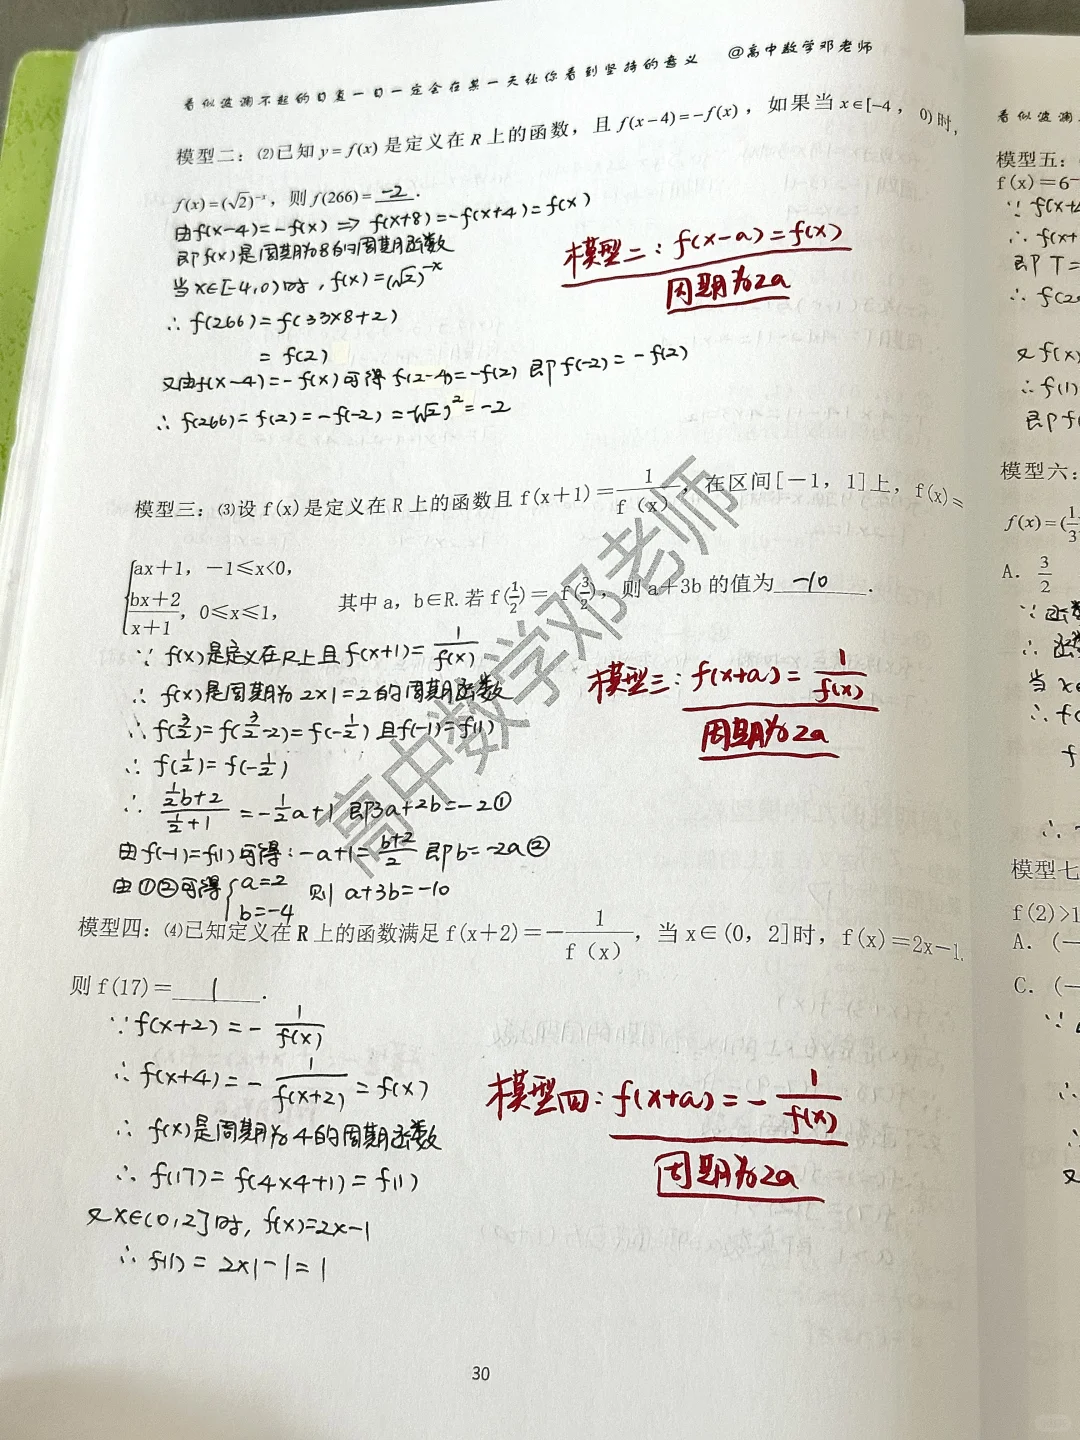 看似波澜不起的日复一日一定会在某一天让你看到坚持的意义 @高中数学邓老师
模型二：⑵已知y=f(x)是定义在R上的函数，且f(x-4)=-f(x)，如果当x∈[-4，0)时，
f(x)=(√2)^{-x}，则f(266)=-2.
由f(x-4)=-f(x) ⇒ f(x+8)=-f(x+4)=f(x)
即f(x)是周期为8的周期函数
当x∈[-4,0)时，f(x)=(√2)^{-x}
∴ f(266)=f(33×8+2)
= f(2)
又由f(x-4)=-f(x)可得 f(2-4)=-f(2) 即f(-2)=-f(2)
∴ f(266)=f(2)=-f(-2)=-(√2)^2=-2
模型二：f(x-a)=f(x)
周期为2a
模型三：⑶设f(x)是定义在R上的函数且f(x+1)=1/f（x），在区间[-1，1]上，f(x)=
{ax+1，-1≤x<0，
(bx+2)/(x+1)，0≤x≤1，
其中a，b∈R.若f(1/2)=f(3/2)，则a+3b的值为-10.
∵ f(x)是定义在R上且f(x+1)=1/f(x)
∴ f(x)是周期为2×1=2的周期函数
∴ f(3/2)=f(3/2-2)=f(-1/2) 且f(-1)=f(1)
∴ f(1/2)=f(-1/2)
∴ (1/2b+2)/(1/2+1)=-1/2a+1 即3a+2b=-2①
由f(-1)=f(1)可得：-a+1=(b+2)/2 即b=-2a②
由①②可得{a=2
b=-4
则 a+3b=-10
模型三：f(x+a)=1/f(x)
周期为2a
模型四：⑷已知定义在R上的函数满足f(x+2)=-1/f（x），当x∈(0，2]时，f(x)=2x-1.
则f(17)=1.
∵f(x+2)=-1/f(x)
∴ f(x+4)=-1/f(x+2)=f(x)
∴ f(x)是周期为4的周期函数
∴ f(17)=f(4×4+1)=f(1)
又x∈(0,2]时，f(x)=2x-1
∴ f(1)=2×1-1=1
模型四：f(x+a)=-1/f(x)
周期为2a
30
高中数学邓老师
看似波澜
模型五：
f(x)=6
∵ f(x+
∴ f(x+
即T=
∴ f(2
又f(x)
∴ f(1)
即f(
模型六：
f(x)=(1/3
A．3/2
∵函
∴函
当x
∴f(
f
模型七
f(2)>1
A．(-
C．(-